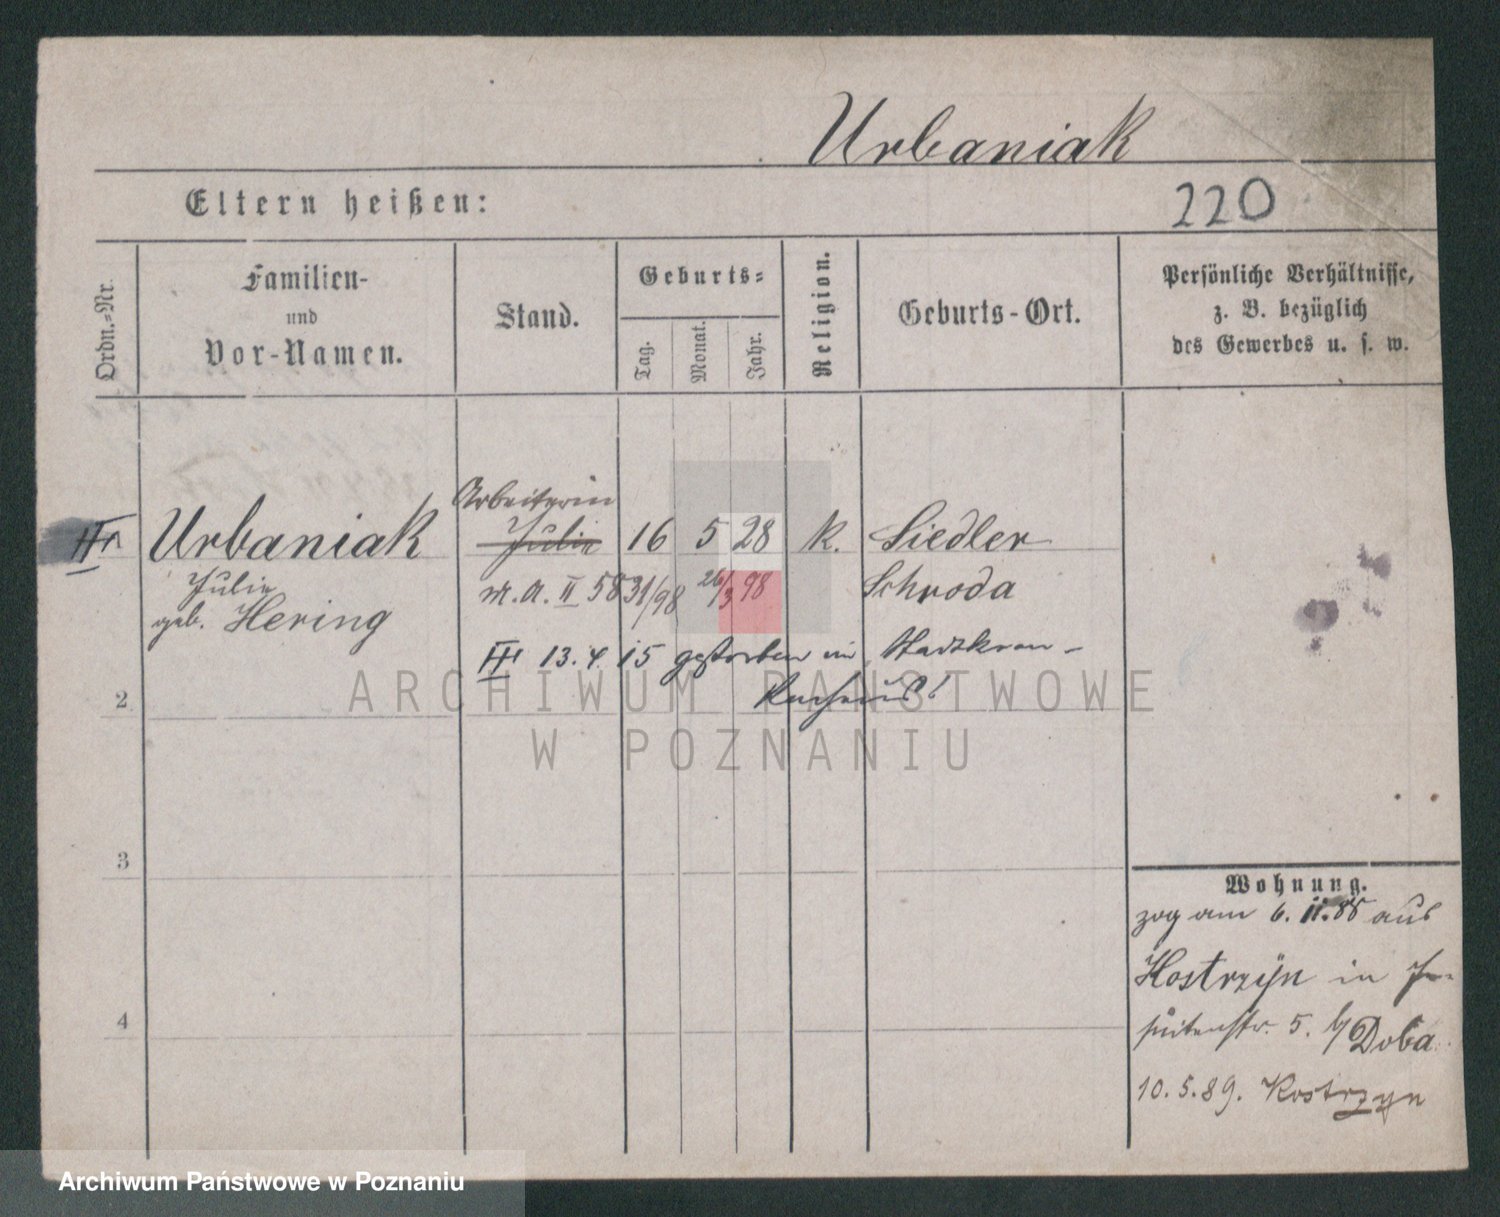 Urbaniak
Eltern heißen:
220
Ordn.-Nr.
Familien-
und
Vor-Namen.
Stand.
Geburts-
Tag.
Monat.
Jahr.
Religion.
Geburts-Ort.
Persönliche Verhältnisse,
z. B. bezüglich
des Gewerbes u. s. w.
Arbeiterin
Urbaniak Julie 16 5 28 k. Siedler
Julie
geb. Hering
m. A. II 58 31/98 26/3 98 Schroda
III 13. 4. 15 gestorben im Stadtkran-
kenhaus!
2
ARCHIWUM PAŃSTWOWE
W POZNANIU
3
4
Wohnung.
zog am 6. 11. 88 aus
Kostrzyn in Je-
suitenstr. 5. b/ Doba
10. 5. 89. Kostrzyn
Archiwum Państwowe w Poznaniu